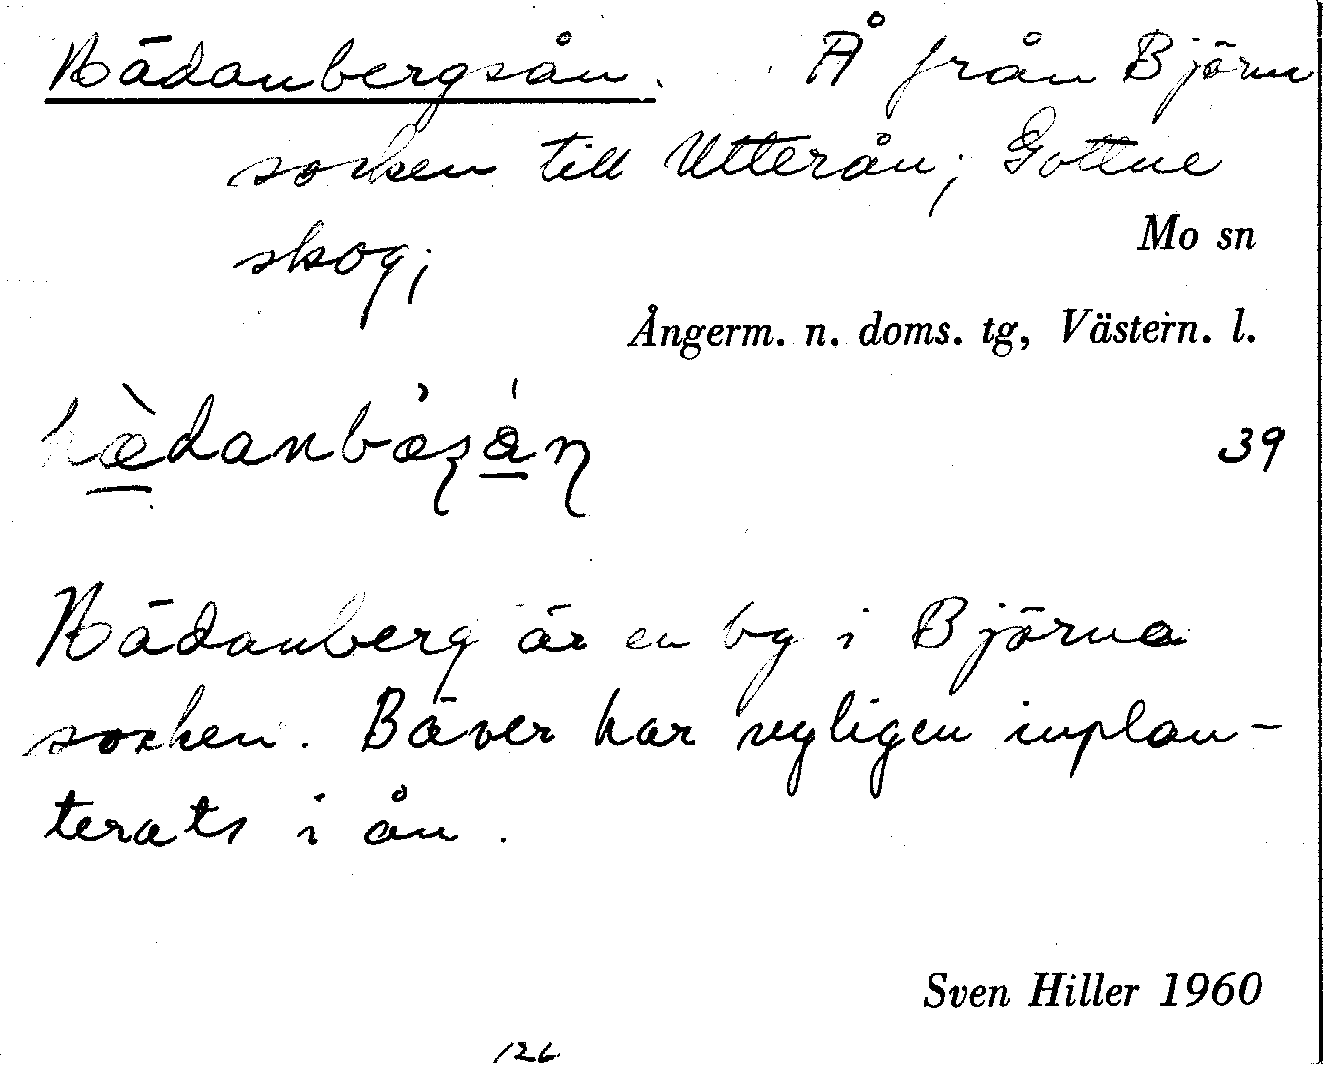 Hädanbergsån. Å från Björna
socken till Utterån; Gottne
skog;
Mo sn
Ångerm. n. doms. tg, Västern. l.
39
Hädanberg är en by i Björna
socken. Bäver har nyligen inplan-
terats i ån.
Sven Hiller 1960
126